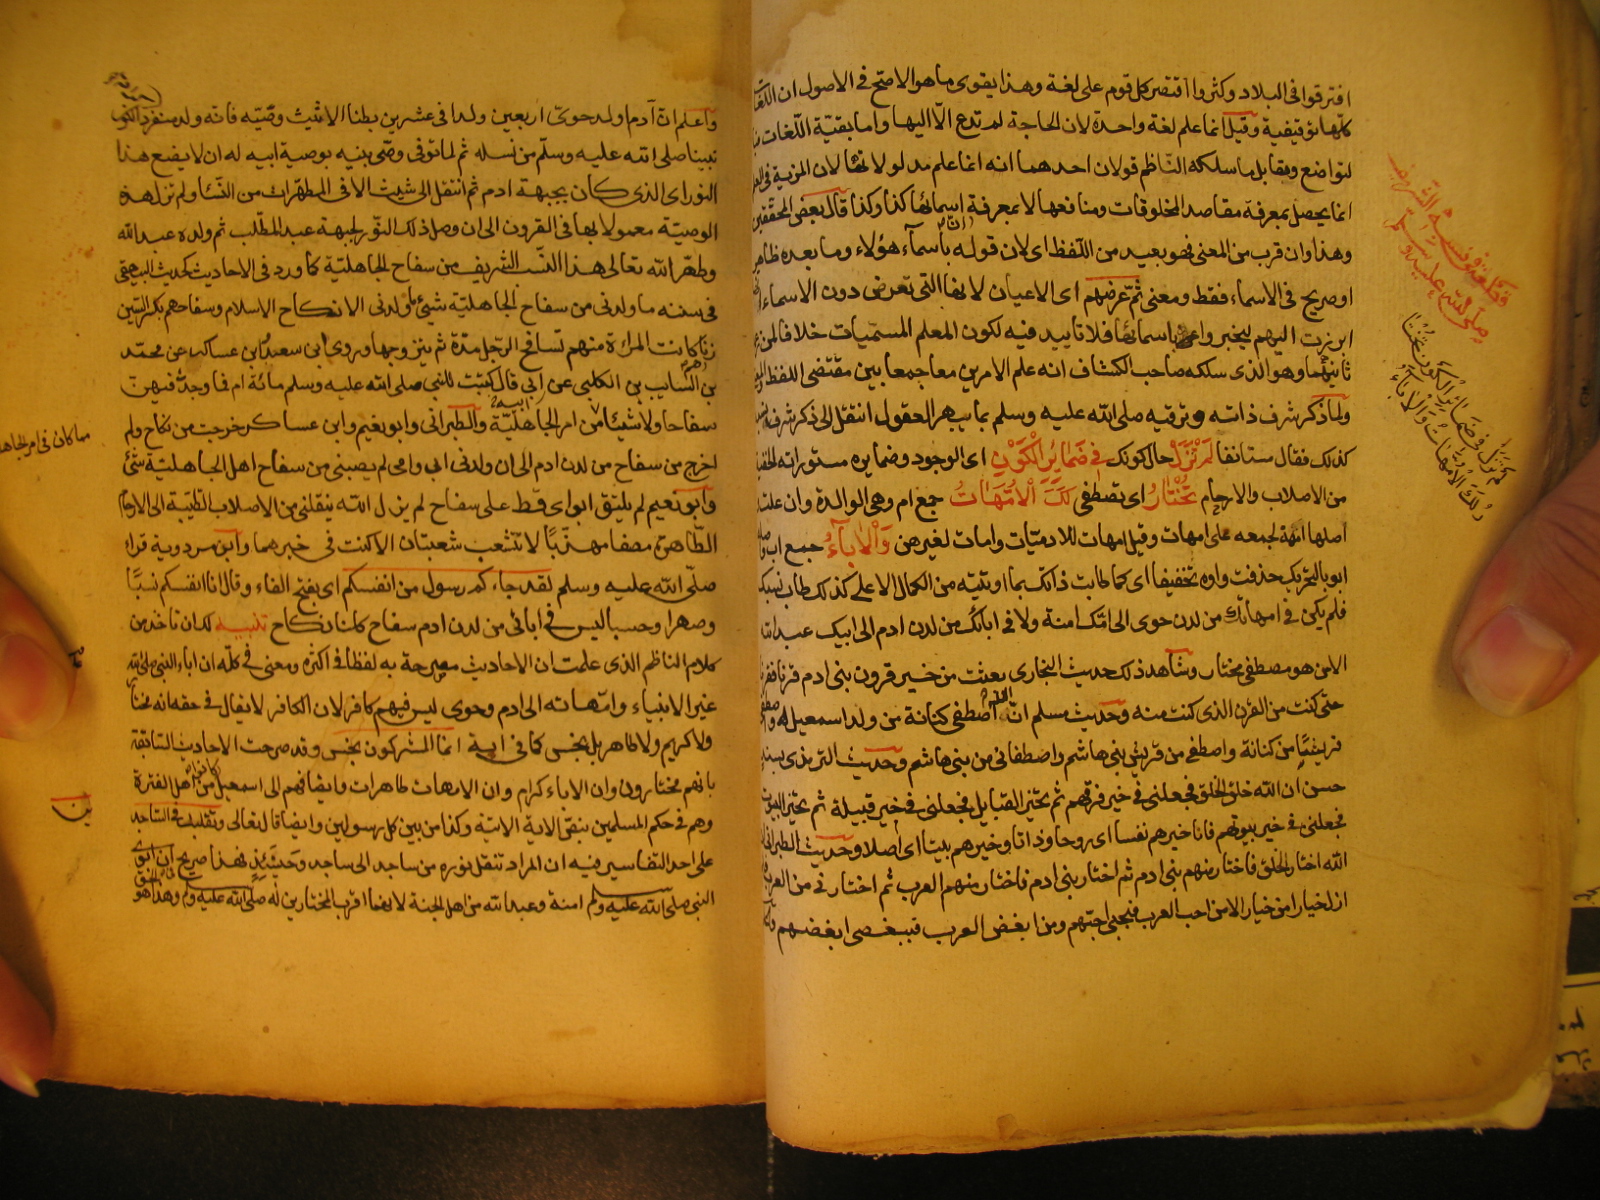 افترقوا في البلاد وكثروا اقتصر كل قوم على لغة وهذا يقوى ما هو الاصح في الاصول ان اللغات
كلها توقيفية وقيل انما علم لغة واحدة لان الحاجة لم تدع الا اليها واما بقية اللغات
لتواضع ومقابل ما سلكه الناظم قولان احدهما انه انما علم مدلولاتها لان المزية في
انما يحصل بمعرفة مقاصد المخلوقات ومنافعها لا بمعرفة اسمائها كذا وكذا قال بعض المحققين
وهذا وان قرب من المعنى فهو بعيد من اللفظ اى لان قوله باسماء هؤلاء وما بعده ظاهر
او صريح في الاسماء فقط ومعنى ثم عرضهم اى الاعيان لانها التى تعرض دون الاسماء
ابرزت اليهم ليخبروا باسمائها فلا تاييد فيه لكون المعلم المسميات خلافا لمن
ثانيهما وهو الذى سلكه صاحب الكشاف انه علم الامرين معا جمعا بين مقتضى اللفظ
ولما ذكر شرف ذاته وترقيه صلى الله عليه وسلم بما يبهر العقول انتقل الى ذكر شرف
كذلك فقال مستانفا لَمْ تَزَلْ حال كونك في ضَمَائِرِ الْكَوْنِ اى الوجود وضمايره مستوراته
من الاصلاب والارحام تُخْتَارُ اى تصطفى لَكَ الْاُمَّهَاتُ جمع ام وهى الوالدة وان علت
اصلها امهة لجمعه على امهات وقيل امهات للادميات وامات لغيرهن وَالْابَاءُ جمع اب
ابو بالتحريك حذفت واوه تخفيفا اى كما طابت ذاتك بما اوتيته من الكمال الاعلى كذلك طاب نسبك
فلم يكن في امهاتك من لدن حوى الى امك امنة ولا في ابائك من لدن ادم الى ابيك عبد الله
الا من هو مصطفى مختار وشاهد ذلك حديث البخارى بعثت من خير قرون بنى ادم قرنا فقرنا
حتى كنت من القرن الذى كنت منه وحديث مسلم ان الله اصطفى كنانة من ولد اسمعيل
قريشا من كنانة واصطفى من قريش بنى هاشم واصطفانى من بنى هاشم وحديث الترمذى بسند
حسن ان الله خلق الخلق فجعلنى في خير فرقهم ثم تخير القبايل فجعلنى في خير قبيلة ثم تخير البيوت
فجعلنى في خير بيوتهم فانا خيرهم نفسا اى روحا وذاتا وخيرهم بيتا اى اصلا وحديث الطبرانى
الله اختار الخلق فاختار منهم بنى ادم ثم اختار بنى ادم فاختار منهم العرب ثم اختارنى من العرب
ازل خيارا من خيار الا من احب العرب فبحبى احبهم ومن ابغض العرب فببغضى ابغضهم
صلى الله عليه وسلم
لم تزل في ضمائر الكون تختا
ر لك الامهات والاباء
واعلم ان آدم ولد حوى اربعين ولدا في عشرين بطنا الا شيث وصيه فانه ولد منفردا
نبينا صلى الله عليه وسلم من نسله ثم لما توفى وصى بنيه بوصية ابيه له ان لا يضع هذا
النور اى الذى كان بجبهة ادم ثم انتقل الى شيث الا في المطهرات من النساء ولم تزل هذه
الوصية معمولا بها في القرون الى ان وصل ذلك النور لجبهة عبد المطلب ثم ولده عبد الله
وطهر الله تعالى هذا النسب الشريف من سفاح الجاهلية كما ورد في الاحاديث كحديث البيهقى
في سننه ما ولدنى من سفاح الجاهلية شيئ ما ولدنى الا نكاح الاسلام وسفاحهم بكسر السين
زنا كانت المراة منهم تسافح الرجل مدة ثم يتزوجها وروى ابن سعد وابن عساكر عن محمد
بن السايب بن الكلبى عن ابيه قال كتبت للنبى صلى الله عليه وسلم مائة ام فما وجدت فيهن
سفاحا ولا شيئا من امر الجاهلية والطبرانى وابو نعيم وابن عساكر خرجت من نكاح ولم
اخرج من سفاح من لدن ادم الى ان ولدنى ابى وامى لم يصبنى من سفاح اهل الجاهلية شئ
وابو نعيم لم يلتق ابواى قط على سفاح لم يزل الله ينقلنى من الاصلاب الطيبة الى الارحام
الطاهرة مصفا مهذبا لا تتشعب شعبتان الا كنت في خيرهما وابن مردوية قراء
صلى الله عليه وسلم لقد جاءكم رسول من انفسكم اى بفتح الفاء وقال انا انفسكم نسبا
وصهرا وحسبا ليس في ابائى من لدن ادم سفاح كلنا نكاح تنبيه لك ان تاخذ من
كلام الناظم الذى علمت ان الاحاديث مصرحة به لفظا في اكثره ومعنى في كله ان اباء النبى صلى الله
غير الانبياء وامهاته الى ادم وحوى ليس فيهم كافر لان الكافر لا يقال في حقه انه مختار
ولا كريم ولا طاهر بل نجس كما في اية انما المشركون نجس وقد صرحت الاحاديث السابقة
بانهم مختارون وان الاباء كرام وان الامهات طاهرات وايضا فهم الى اسمعيل كانوا من اهل الفترة
وهم في حكم المسلمين بنص الاية الاتية وكذا من بين كل رسولين وايضا قال تعالى وتقلبك في الساجد
ين
على احد التفاسير فيه ان المراد تنقل نوره من ساجد الى ساجد وحينئذ فهذا صريح ان ابوى
النبى صلى الله عليه وسلم امنة وعبد الله من اهل الجنة لانهما اقرب المختارين له صلى الله عليه وسلم وهذا هو
مما كان في امر الجاهلية